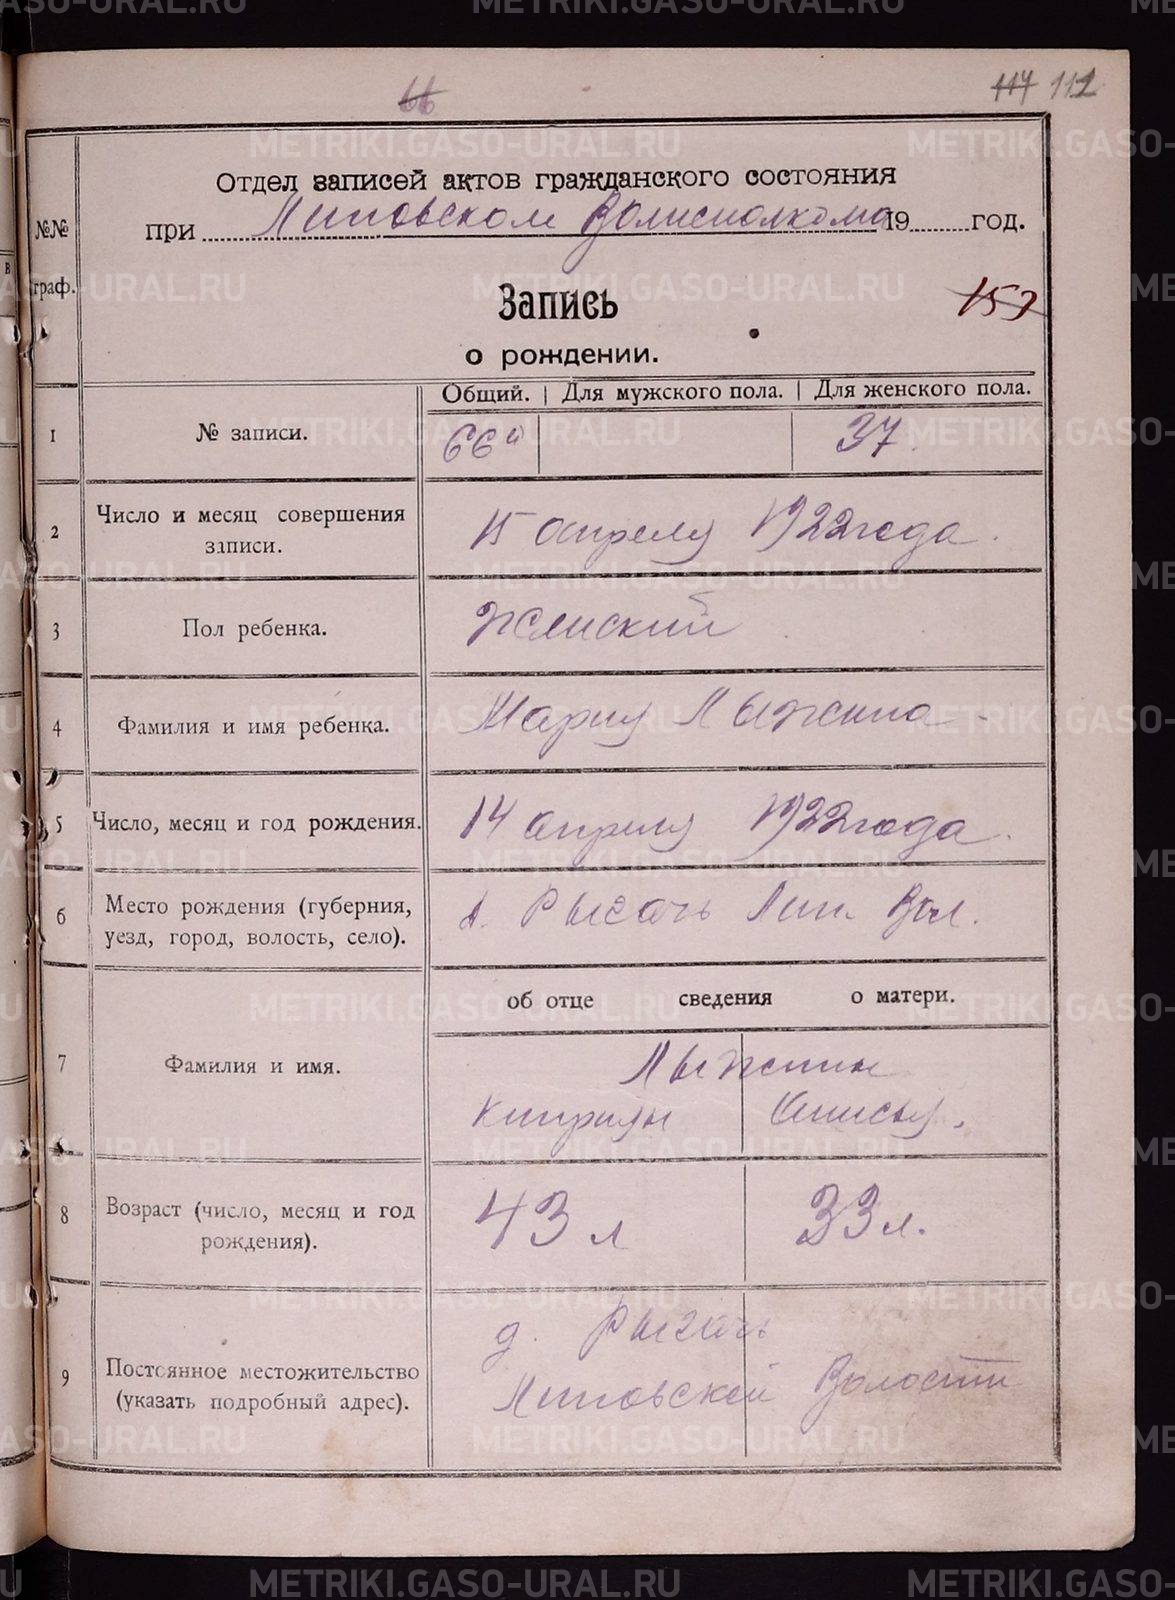 66
117 112
Отдел записей актов гражданского состояния
при Липовском Волисполкома 19 год.
№№
граф.
Запись
153
о рождении.
Общий. | Для мужского пола. | Для женского пола.
1 № записи. 66 37
2 Число и месяц совершения
записи.
15 апреля 1922 года.
3 Пол ребенка. Женский
4 Фамилия и имя ребенка. Мария Лыжина
5 Число, месяц и год рождения. 14 апреля 1922 года.
6 Место рождения (губерния,
уезд, город, волость, село).
д. Рычачь Лип. Вол.
об отце сведения о матери.
7 Фамилия и имя. Лыжины
Киприян Анисья.
8 Возраст (число, месяц и год
рождения).
43 л 33 л.
9 Постоянное местожительство
(указать подробный адрес).
д.
Липовской Волости
METRIKI.GASO-URAL.RU